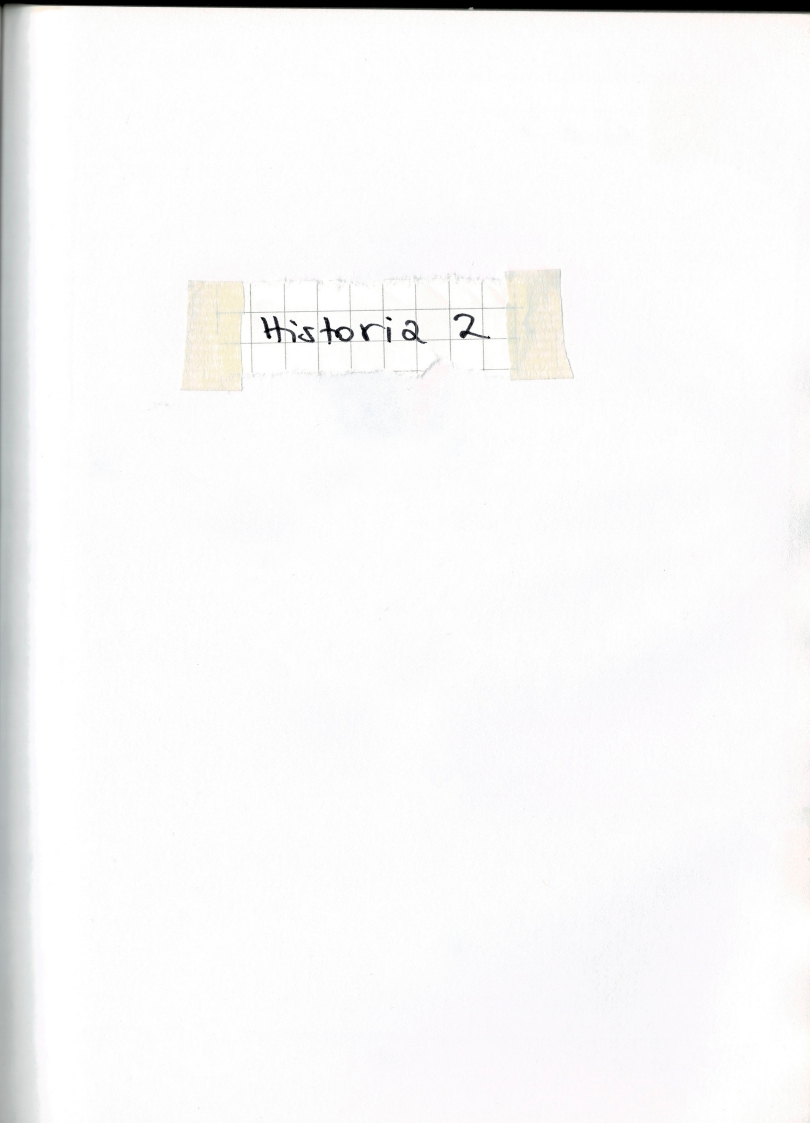 Historia 2